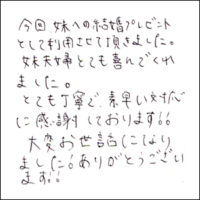 今回、妹への結婚プレゼント
として利用させて頂きました。
妹夫婦とても喜んでくれ
ました。
とても丁寧で、素早い対応
に感謝しております!!
大変お世話になり
ました。ありがとうござい
ます!!